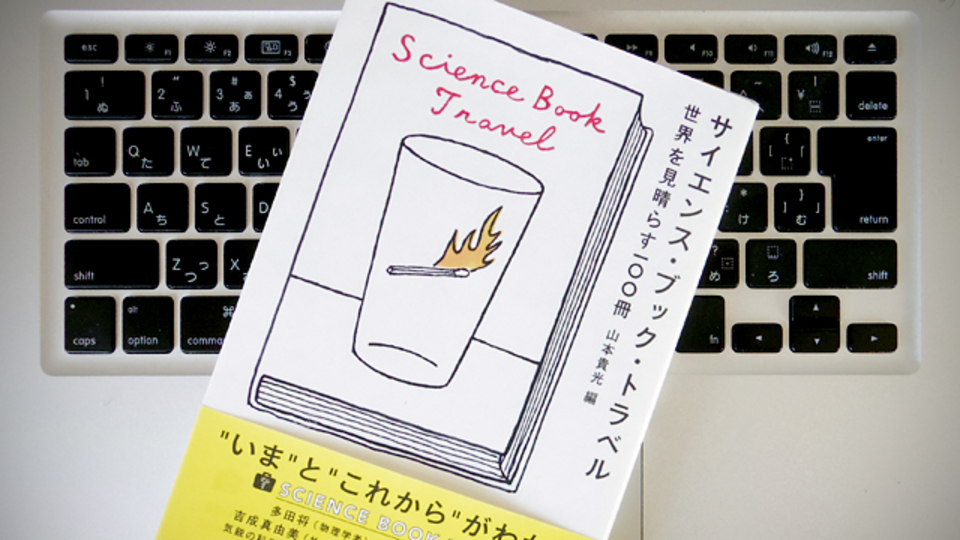 Science Book
Travel
サイエンス・ブック・トラベル
世界を見晴らす一〇〇冊
山本貴光 編
"いま"と"これから"がわ
SCIENCE BOOK
多田将(物理学者)
吉成真由美
気鋭の科
esc
F1
F2
F10
F11
F12
1 ! ぬ
2 " ふ
3 # あ ぁ
4 $ う ぅ
delete
tab
Q た
W て
E い ぃ
enter
return
control
A ち
S と
D
* け
} ] 」 む
shift
Z つ っ
X
? め
ろ
shift
caps
alt
option
⌘
comma
fn